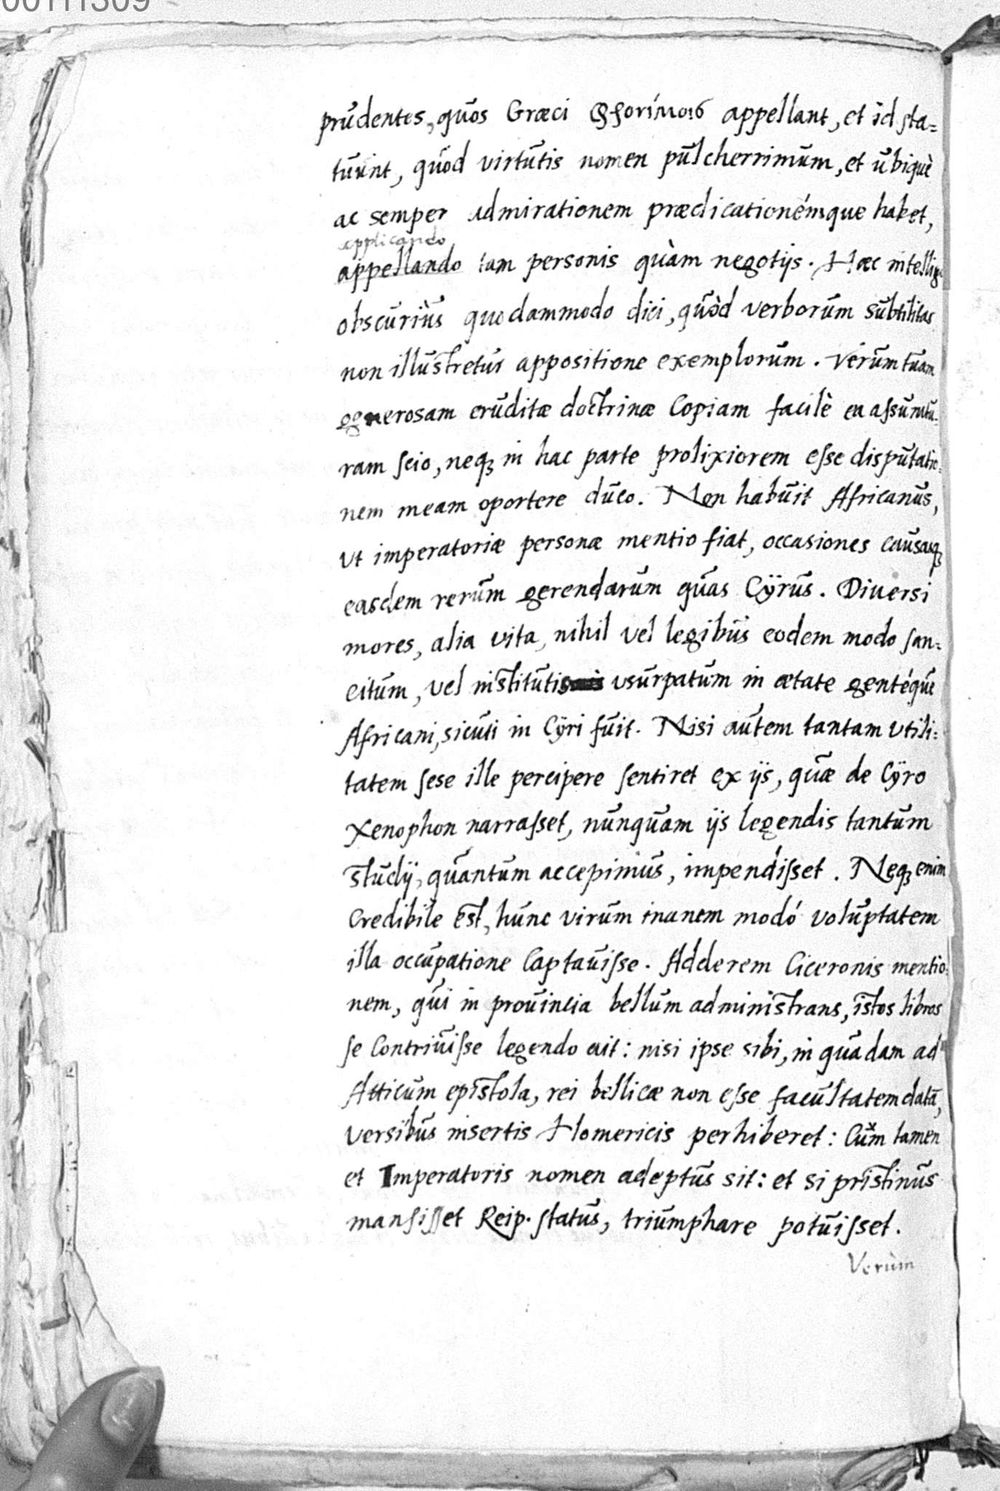 prudentes, quos Græci φρονίμους appellant, et id sta=
tuunt, quod virtutis nomen pulcherrimum, et ubiquè
ac semper admirationem prædicationémque habet,
applicando
appellando tam personis quàm negotijs. Hæc intellig
obscuriùs quodammodo dici, quòd verborum subtilitas
non illustretur appositione exemplorum. Verum tuam
generosam eruditæ doctrinæ Copiam facilè ea assumtu=
ram scio, neq; in hac parte prolixiorem esse disputatio=
nem meam oportere duco. Non habuit Africanus,
ut imperatoriæ personæ mentio fiat, occasiones causasq;
easdem rerum gerendarum quas Cÿrus. Diuersi
mores, alia vita, nihil vel legibus eodem modo san=
citum, vel institutis usurpatum in ætate gentéque
Africani, sicuti in Cÿri fuit. Nisi autem tantam utili=
tatem sese ille percipere sentiret ex ijs, quæ de Cÿro
Xenophon narrasset, nunquam ijs legendis tantum
studij, quantum accepimus, impendisset. Neq; enim
Credibile est, hunc virum inanem modó voluptatem
illa occupatione Captauisse. Adderem Ciceronis mentio=
nem, qui in prouincia bellum administrans, istos libros
se Contriuisse legendo ait: nisi ipse sibi, in quadam ad
Atticum epistola, rei bellicæ non esse facultatem datā,
Versibus insertis Homericis perhiberet: Cum tamen
et Imperatoris nomen adeptus sit: et si pristinus
mansisset Reip. status, triumphare potuisset.
Verùm